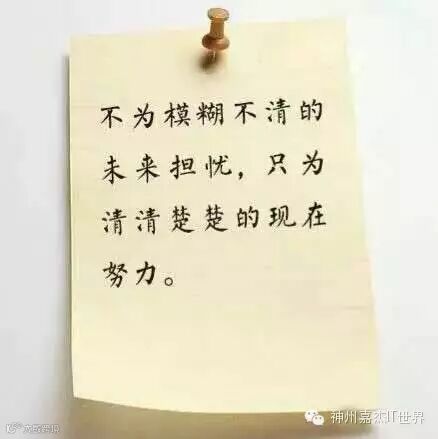 不为模糊不清的
未来担忧，只为
清清楚楚的现在
努力。
神州嘉杰IT世界